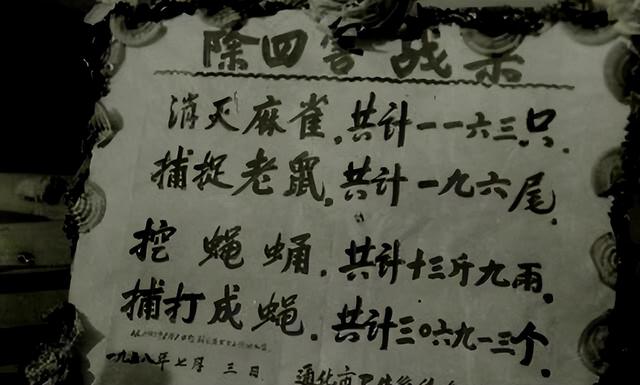 除四害战果
消灭麻雀.共计一一六三只.
捕捉老鼠.共计一九六尾.
挖蝇蛹.共计十三斤九兩.
捕打成蝇.共计三〇六九一三个.
一九五八年七月三日
通化市卫生